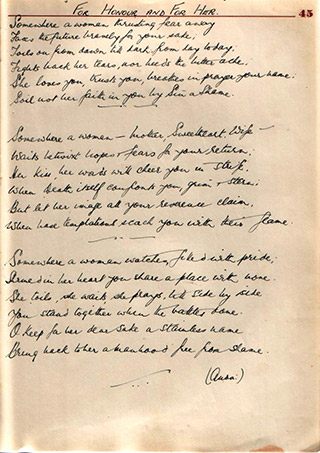 FOR HONOUR AND FOR HER.
45
Somewhere a woman thrusting fear away
Faces the future bravely for your sake,
Toils on from dawn till dark from day to day.
Fights back her tears, nor heeds the bitter ache.
She loves you, trusts you, breathes in prayer your name.
Soil not her faith in you by Sin or Shame.
Somewhere a woman – mother, Sweetheart, Wife –
Waits betwixt hopes & fears for your return;
Her kiss, her words will cheer you in strife,
When Death itself confronts you, grim & stern;
But let her image all your reverence claim,
When base temptations scorch you with their flame.
Somewhere a woman watches, filled with pride;
Shrined in her heart you share a place with none.
She toils, she waits, she prays, till side by side
You stand together when the battles done.
O keep for her dear sake a stainless name
Bring back to her a manhood free from shame.
(Anon.)